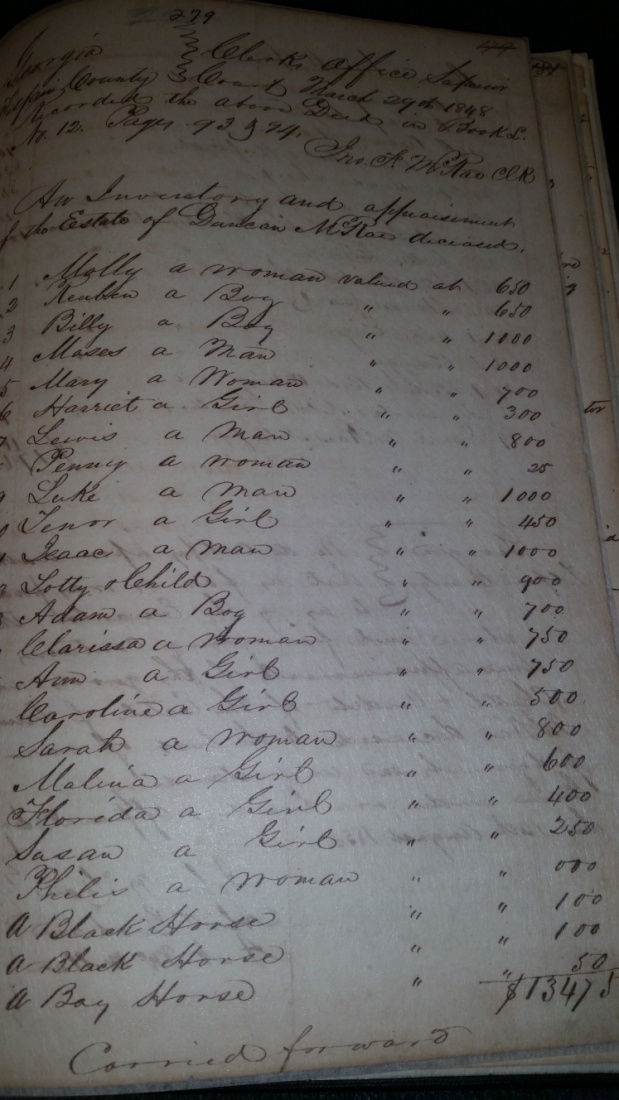 279
Georgia } Clerks Office Superior
County } Court March 29th 1848
Recorded the above Deed in Book L.
No. 12. Pages 93 & 94.
Jno. F. McRae Clk
An Inventory and appraisement
of the Estate of Duncan McRae deceased.
1 Molly a woman valued at 650
2 Reuben a Boy " " 650
3 Billy a Boy " " 1000
4 Moses a Man " " 1000
5 Mary a Woman " " 700
6 Harriet a Girl " " 300
7 Lewis a Man " " 800
Penny a woman " " 25
9 Luke a Man " " 1000
Tenor a Girl " " 450
Isaac a Man " " 1000
Lotty & Child " " 900
Adam a Boy " " 700
Clarissa a Woman " " 750
Ann a Girl " " 750
Caroline a Girl " " 500
Sarah a Woman " " 800
Malina a Girl " " 600
Florida a Girl " " 400
Susan a Girl " " 250
Philis a Woman " " 000
A Black Horse " " 100
A Black Horse " " 100
A Bay Horse " " 50
$13475
Carried forward